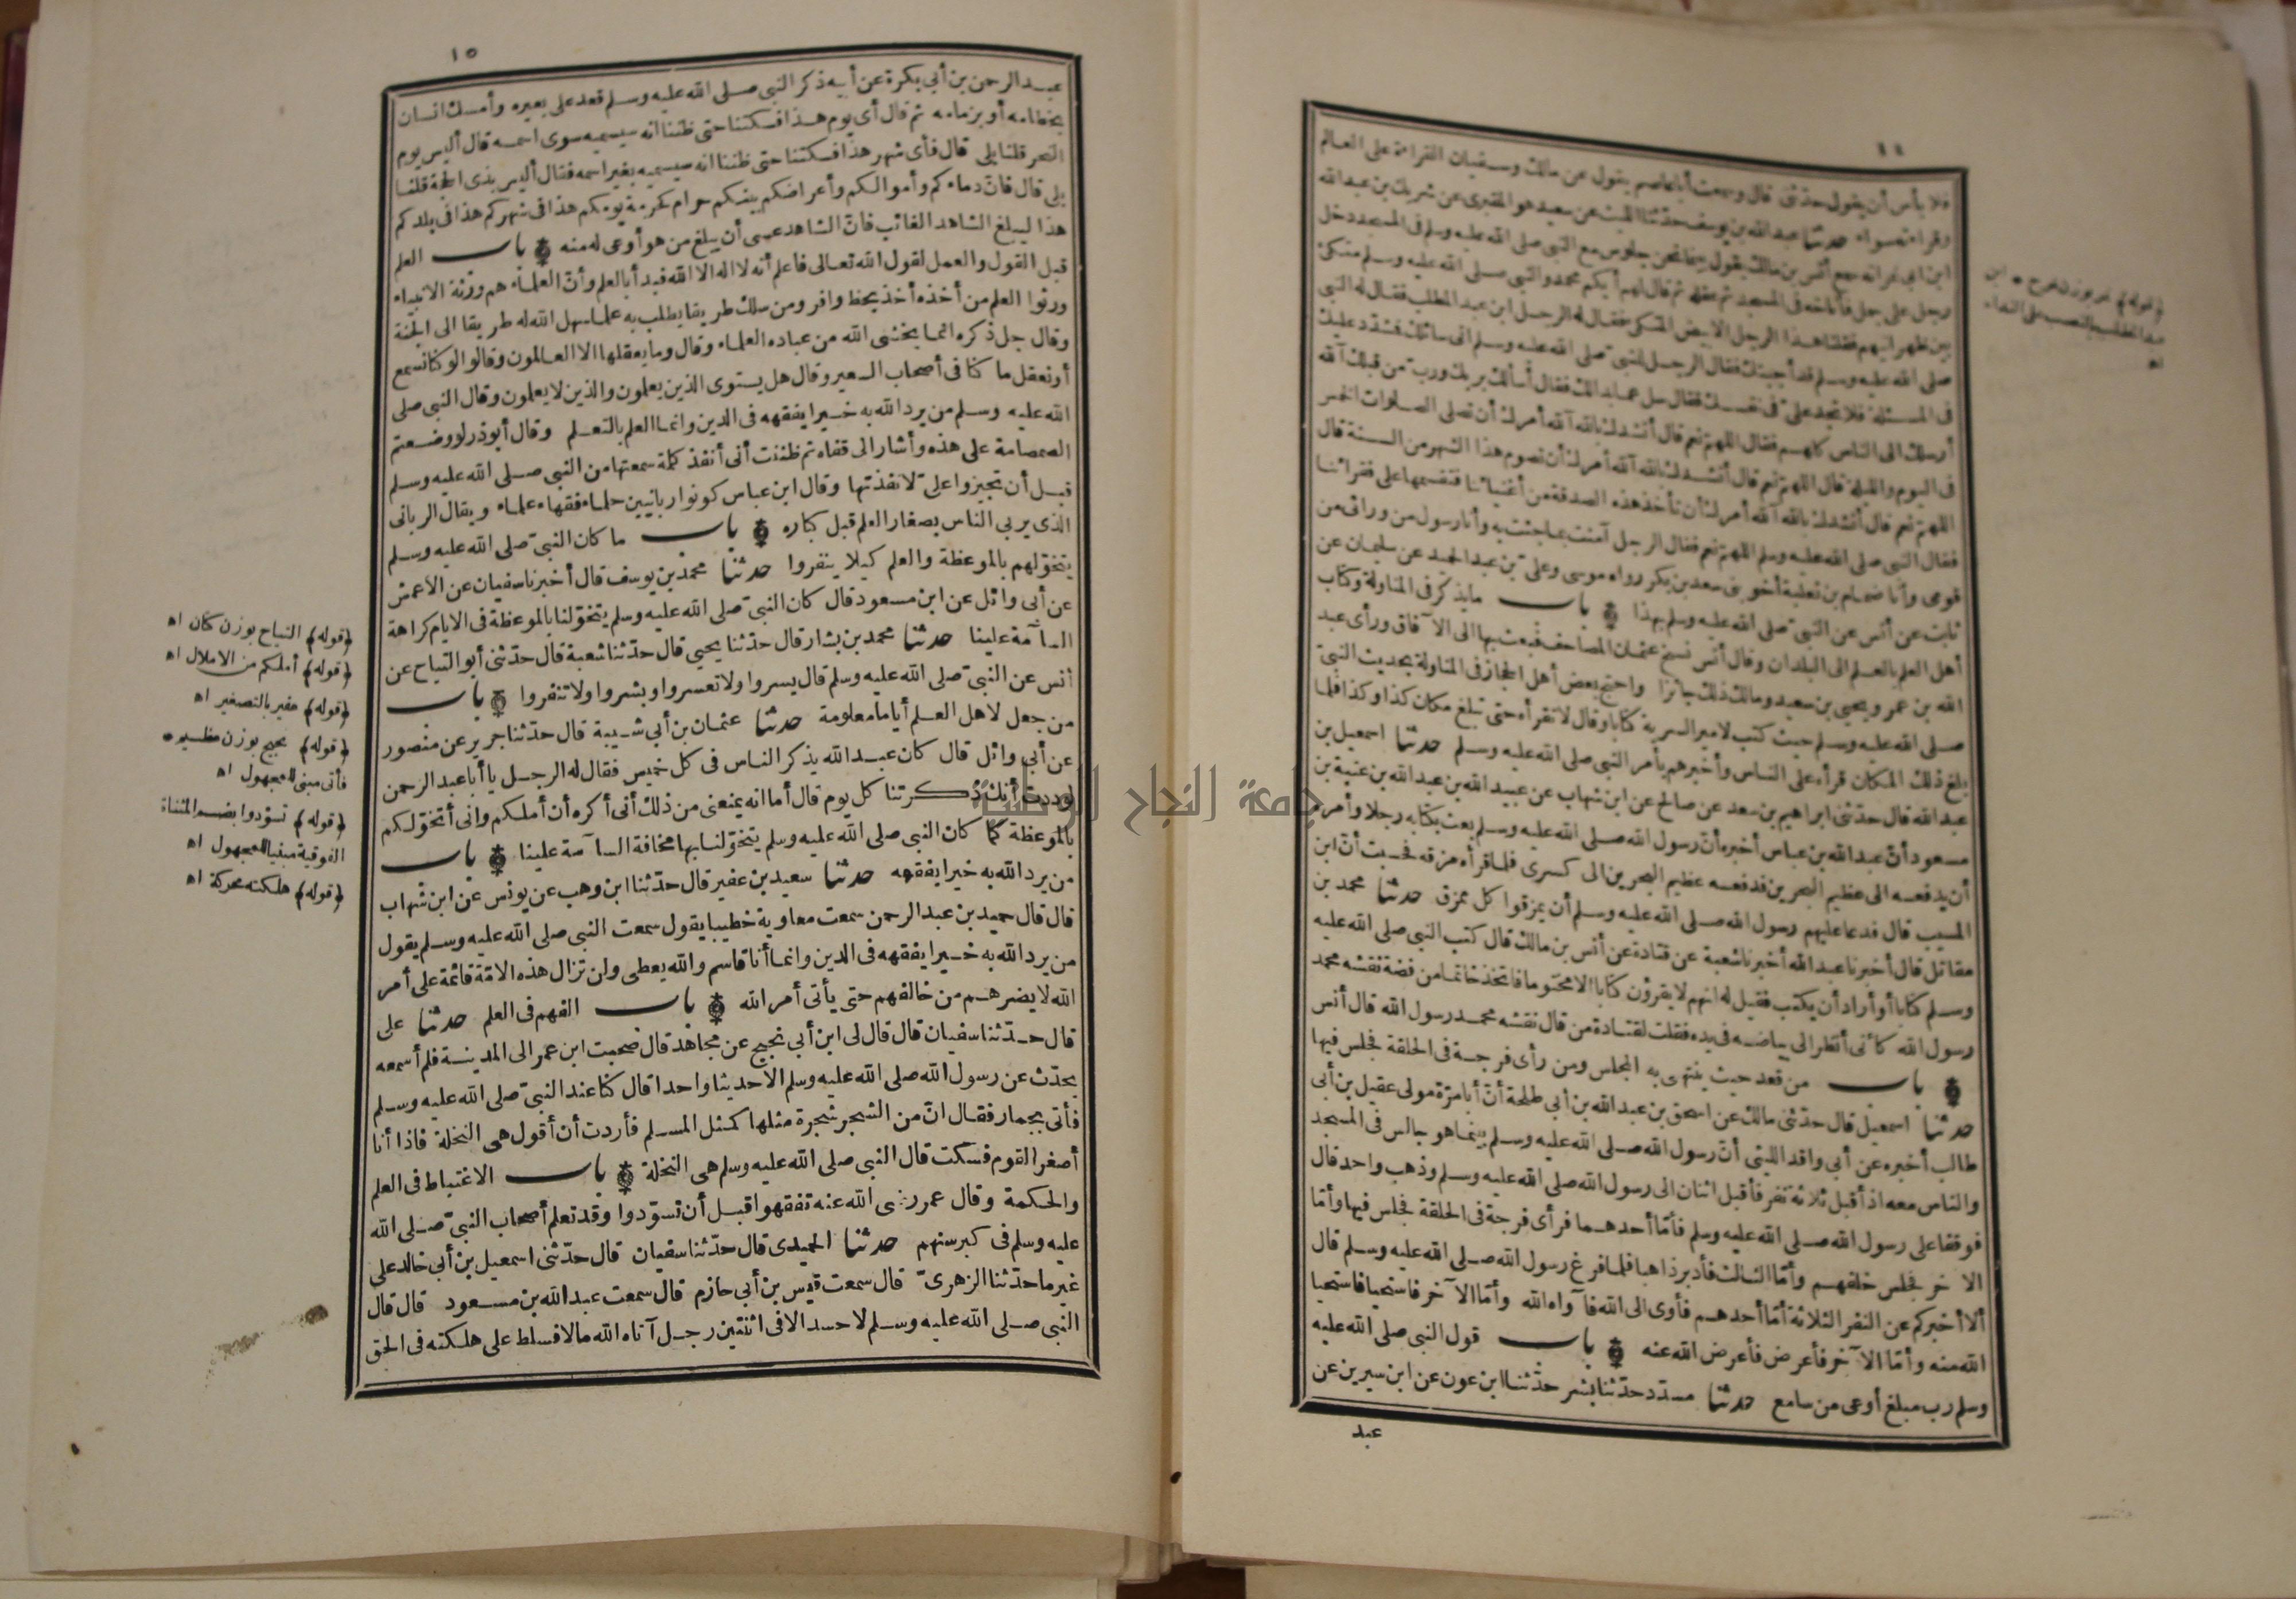 فلا بأس أن يقول حدثنى قال وسمعت أبا عاصم يقول عن مالك وسفيان القراءة على العالم
وقراءته سواء حدثنا عبد الله بن يوسف حدّثنا الليث عن سعيد هو المقبرى عن شريك بن عبد الله
ابن أبى نمر انه سمع أنس بن مالك يقول بينما نحن جلوس مع النبى صلى الله عليه وسلم فى المسجد دخل
رجل على جمل فأناخه فى المسجد ثم عقله ثم قال لهم أيكم محمد والنبى صلى الله عليه وسلم متكئ
بين ظهرانيهم فقلنا هذا الرجل الابيض المتكئ فقال له الرجل ابن عبد المطلب فقال له النبى
صلى الله عليه وسلم قد أجبتك فقال الرجل للنبى صلى الله عليه وسلم انى سائلك فمشدّد عليك
فى المسئلة فلا تجد علىّ فى نفسك فقال سل عما بدالك فقال أسألك بربك ورب من قبلك آلله
أرسلك الى الناس كلهم فقال اللهمّ نعم قال أنشدك بالله آلله أمرك أن تصلى الصلوات الخمس
فى اليوم والليلة قال اللهمّ نعم قال أنشدك بالله آلله أمرك أن تصوم هذا الشهر من السنة قال
اللهمّ نعم قال أنشدك بالله آلله أمرك أن تأخذ هذه الصدقة من أغنيائنا فتقسمها على فقرائنا
فقال النبى صلى الله عليه وسلم اللهمّ نعم فقال الرجل آمنت بما جئت به وأنا رسول من ورائى من
قومى وأنا ضمام بن ثعلبة أخو بنى سعد بن بكر رواه موسى وعلىّ بن عبد الحميد عن سليمان عن
ثابت عن أنس عن النبىّ صلى الله عليه وسلم بهذا باب ما يذكر فى المناولة وكتاب
أهل العلم بالعلم الى البلدان وقال أنس نسخ عثمان المصاحف فبعث بها الى الآفاق ورأى عبد
الله بن عمر ويحيى بن سعيد ومالك ذلك جائزا واحتج بعض أهل الحجاز فى المناولة بحديث النبىّ
صلى الله عليه وسلم حيث كتب لامير السرية كتابا وقال لا تقرأه حتى تبلغ مكان كذا وكذا فلما
بلغ ذلك المكان قرأه على الناس وأخبرهم بأمر النبى صلى الله عليه وسلم حدثنا اسمعيل بن
عبد الله قال حدّثنى ابراهيم بن سعد عن صالح عن ابن شهاب عن عبيد الله بن عبد الله بن عتبة بن
مسعود أنّ عبد الله بن عباس أخبره أن رسول الله صلى الله عليه وسلم بعث بكتابه رجلا وأمره
أن يدفعه الى عظيم البحرين فدفعه عظيم البحرين الى كسرى فلما قرأه مزقه فحسبت أن ابن
المسيب قال فدعا عليهم رسول الله صلى الله عليه وسلم أن يمزقوا كل ممزق حدثنا محمد بن
مقاتل قال أخبرنا عبد الله أخبرنا شعبة عن قتادة عن أنس بن مالك قال كتب النبى صلى الله عليه
وسلم كتابا أو أراد أن يكتب فقيل له انهم لا يقرؤن كتابا الا مختوما فاتخذ خاتما من فضة نقشه محمد
رسول الله كأنى أنظر الى بياضه فى يده فقلت لقتادة من قال نقشه محمد رسول الله قال أنس
باب من قعد حيث ينتهى به المجلس ومن رأى فرجة فى الحلقة فجلس فيها
حدثنا اسمعيل قال حدّثنى مالك عن اسحق بن عبد الله بن أبى طلحة أنّ أبا مرّة مولى عقيل بن أبى
طالب أخبره عن أبى واقد الليثى أن رسول الله صلى الله عليه وسلم بينما هو جالس فى المسجد
والناس معه اذ أقبل ثلاثة نفر فأقبل اثنان الى رسول الله صلى الله عليه وسلم وذهب واحد قال
فوقفا على رسول الله صلى الله عليه وسلم فأمّا أحدهما فرأى فرجة فى الحلقة فجلس فيها وأمّا
الآخر فجلس خلفهم وأمّا الثالث فأدبر ذاهبا فلما فرغ رسول الله صلى الله عليه وسلم قال
ألا أخبركم عن النفر الثلاثة أمّا أحدهم فأوى الى الله فآواه الله وأمّا الآخر فاستحيا فاستحيا
الله منه وأمّا الآخر فأعرض فأعرض الله عنه باب قول النبى صلى الله عليه
وسلم رب مبلغ أوعى من سامع حدثنا مسدّد حدّثنا بشر حدّثنا ابن عون عن ابن سيرين عن
عبد
١٥
عبد الرحمن بن أبى بكرة عن أبيه ذكر النبى صلى الله عليه وسلم قعد على بعيره وأمسك انسان
بخطامه أو بزمامه ثم قال أى يوم هذا فسكتنا حتى ظننا انه سيسميه سوى اسمه قال أليس يوم
النحر قلنا بلى قال فأى شهر هذا فسكتنا حتى ظننا انه سيسميه بغير اسمه فقال أليس بذى الحجة قلنا
بلى قال فانّ دماءكم وأموالكم وأعراضكم بينكم حرام كحرمة يومكم هذا فى شهركم هذا فى بلدكم
هذا ليبلغ الشاهد الغائب فانّ الشاهد عسى أن يبلغ من هو أوعى له منه باب العلم
قبل القول والعمل لقول الله تعالى فاعلم أنه لا اله الا الله فبدأ بالعلم وأنّ العلماء هم ورثة الانبياء
ورثوا العلم من أخذه أخذ بحظ وافر ومن سلك طريقا يطلب به علما سهل الله له طريقا الى الجنة
وقال جل ذكره انما يخشى الله من عباده العلماء وقال وما يعقلها الا العالمون وقالوا لو كنا نسمع
أو نعقل ما كنا فى أصحاب السعير وقال هل يستوى الذين يعلمون والذين لا يعلمون وقال النبى صلى
الله عليه وسلم من يرد الله به خيرا يفقهه فى الدين وانما العلم بالتعلم وقال أبو ذر لو وضعتم
الصمصامة على هذه وأشار الى قفاه ثم ظننت أنى أنفذ كلمة سمعتها من النبى صلى الله عليه وسلم
قبل أن تجيزوا علىّ لانفذتها وقال ابن عباس كونوا ربانيين حلماء فقهاء علماء ويقال الربانى
الذى يربى الناس بصغار العلم قبل كباره باب ما كان النبىّ صلى الله عليه وسلم
يتخوّلهم بالموعظة والعلم كيلا ينفروا حدثنا محمد بن يوسف قال أخبرنا سفيان عن الأعمش
عن أبى وائل عن ابن مسعود قال كان النبىّ صلى الله عليه وسلم يتخوّلنا بالموعظة فى الايام كراهة
السآمة علينا حدثنا محمد بن بشار قال حدّثنا يحيى قال حدّثنا شعبة قال حدّثنى أبو التياح عن
أنس عن النبىّ صلى الله عليه وسلم قال يسروا ولا تعسروا وبشروا ولا تنفروا باب
من جعل لاهل العلم أياما معلومة حدثنا عثمان بن أبى شيبة قال حدّثنا جرير عن منصور
عن أبى وائل قال كان عبد الله يذكر الناس فى كل خميس فقال له الرجل يا أبا عبد الرحمن
لوددت أنك ذكرتنا كل يوم قال أما انه يمنعنى من ذلك أنى أكره أن أملكم وانى أتخوّلكم
بالموعظة كما كان النبى صلى الله عليه وسلم يتخوّلنا بها مخافة السآمة علينا باب
من يرد الله به خيرا يفقهه حدثنا سعيد بن عفير قال حدّثنا ابن وهب عن يونس عن ابن شهاب
قال قال حميد بن عبد الرحمن سمعت معاوية خطيبا يقول سمعت النبى صلى الله عليه وسلم يقول
من يرد الله به خيرا يفقهه فى الدين وانما أنا قاسم والله يعطى ولن تزال هذه الامّة قائمة على أمر
الله لا يضرهم من خالفهم حتى يأتى أمر الله باب الفهم فى العلم حدثنا على
قال حدّثنا سفيان قال قال لى ابن أبى نجيح عن مجاهد قال صحبت ابن عمر الى المدينة فلم أسمعه
يحدّث عن رسول الله صلى الله عليه وسلم الا حديثا واحدا قال كنا عند النبىّ صلى الله عليه وسلم
فأتى بجمار فقال انّ من الشجر شجرة مثلها كمثل المسلم فأردت أن أقول هى النخلة فاذا أنا
أصغر القوم فسكت قال النبى صلى الله عليه وسلم هى النخلة باب الاغتباط فى العلم
والحكمة وقال عمر رضى الله عنه تفقهوا قبل أن تسوّدوا وقد تعلم أصحاب النبىّ صلى الله
عليه وسلم فى كبر سنهم حدثنا الحميدى قال حدّثنا سفيان قال حدّثنى اسمعيل بن أبى خالد على
غير ما حدّثناه الزهرىّ قال سمعت قيس بن أبى حازم قال سمعت عبد الله بن مسعود قال قال
النبى صلى الله عليه وسلم لا حسد الا فى اثنتين رجل آتاه الله مالا فسلط على هلكته فى الحق
﴿قوله﴾ التياح بوزن كتان اه
﴿قوله﴾ أملكم من الاملال اه
﴿قوله﴾ عفير بالتصغير اه
﴿قوله﴾ نجيح بوزن عظيم
فأتى مبنى للمجهول اه
﴿قوله﴾ تسوّدوا بضم المثناة
الفوقية مبنيا للمجهول اه
﴿قوله﴾ هلكته محركة اه
جامعة النجاح الوطنية